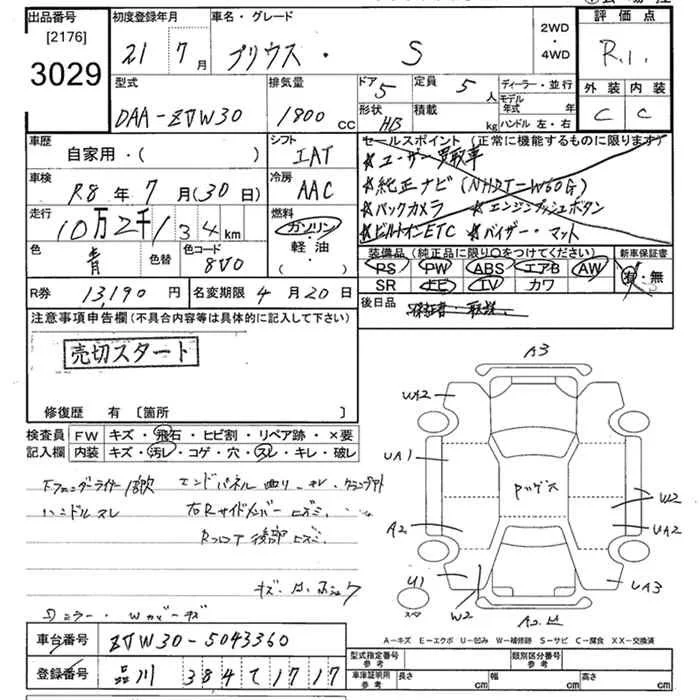 出品番号
[2176]
3029
初度登録年月
21 7 月
車名・グレード
プリウス・ S
2WD
・
4WD
評価点
R.1.
外装 内装
C C
型式
DAA-ZVW30
排気量
1800 CC
ドア 5
定員 5 人
形状 HB
積載 kg
ディーラー・並行
モデル年式 年
ハンドル 左・右
車歴
自家用・( )
シフト
IAT
車検
R8 年 7 月(30 日)
冷房
AAC
走行
10万2千134 km
燃料
ガソリン
・
軽・油
・
( )
色
青
色替
色コード
8V0
セールスポイント(正常に機能するものに限ります)
★ユーザー買取車
★純正ナビ(NHDT-W60G)
★バックカメラ ★エンジンプッシュボタン
★ビルトインETC ★バイザー・マット
装備品(純正品に限り○をつけてください)
PS PW ABS エアB AW
SR レピ TV カワ
新車保証書
有・無
R券 13,190 円
名変期限 4 月 20 日
後日品
保証書・取説
注意事項申告欄(不具合内容等は具体的に記入して下さい)
売切スタート
修復歴 有〔箇所 〕
検査員
記入欄
FW キズ・飛石・ヒビ割・リペア跡・×要
内装 キズ・汚レ・コゲ・穴・スレ・キレ・破レ
エンドパネル曲リ
ハンドルスレ
右Rサイドメンバーヒズミ
Rフロア後部ヒズミ
A3
UA2
UA1
A2
U1
W2
W2
UA2
UA3
スペア
A-キズ E-エクボ U-凹み W-補修跡 S-サビ C-腐食 XX-交換済
車台番号 ZVW30-5043360
登録番号 品川 384 て 1717
型式指定番号
参考
類別区分番号
参考
車庫証明用
参考
長さ cm
幅 cm
高さ cm